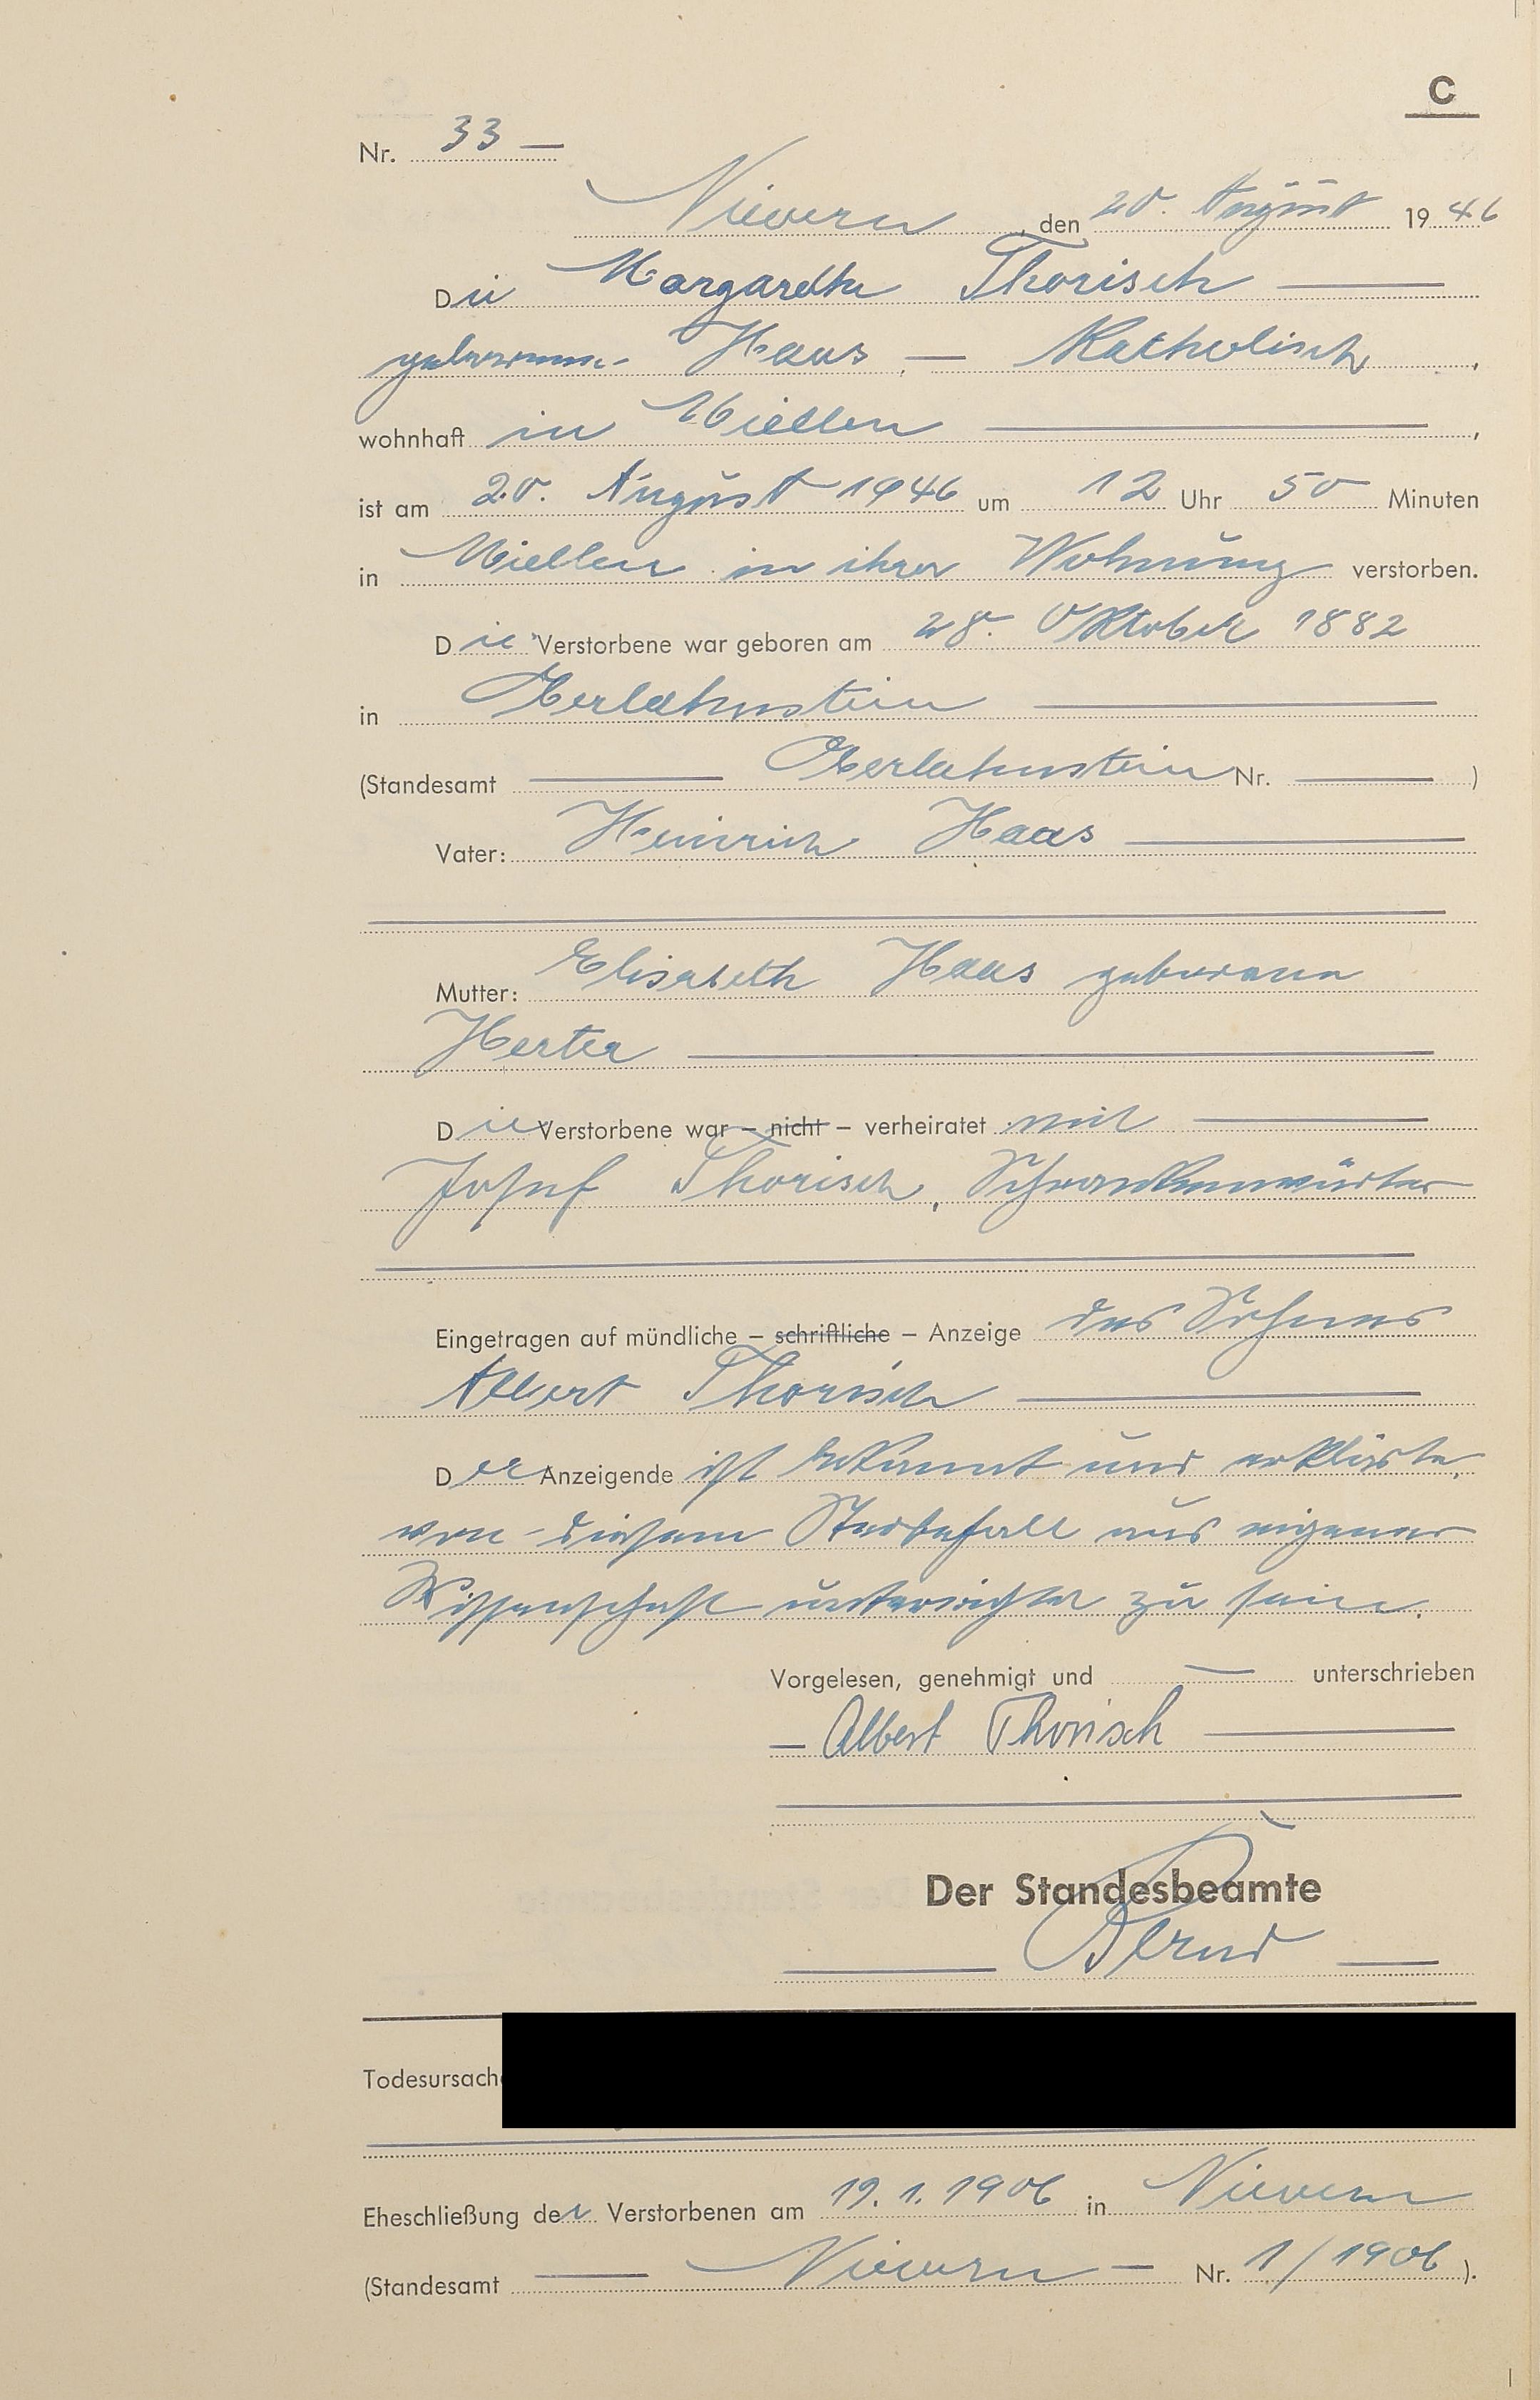 C
Nr. 33 —
Nievern, den 20. August 1946
Die Margaretha Thorisch —
geborene Haas, — Katholisch,
wohnhaft in Miellen —,
ist am 20. August 1946 um 12 Uhr 50 Minuten
in Miellen in ihrer Wohnung verstorben.
Die Verstorbene war geboren am 28. Oktober 1882
in Oberlahnstein —
(Standesamt — Oberlahnstein Nr. —)
Vater: Heinrich Haas —
Mutter: Elisabeth Haas geborene
Herter —
Die Verstorbene war – nicht – verheiratet mit —
Josef Thorisch, Schrankenwärter
Eingetragen auf mündliche – schriftliche – Anzeige des Sohnes
Albert Thorisch —
Der Anzeigende ist bekannt und erklärte,
von diesem Sterbefall aus eigener
Wissenschaft unterrichtet zu sein.
Vorgelesen, genehmigt und — unterschrieben
— Albert Thorisch —
Der Standesbeamte
Todesursach
Eheschließung der Verstorbenen am 19.1.1906 in Nievern
(Standesamt — Nievern — Nr. 1/1906).